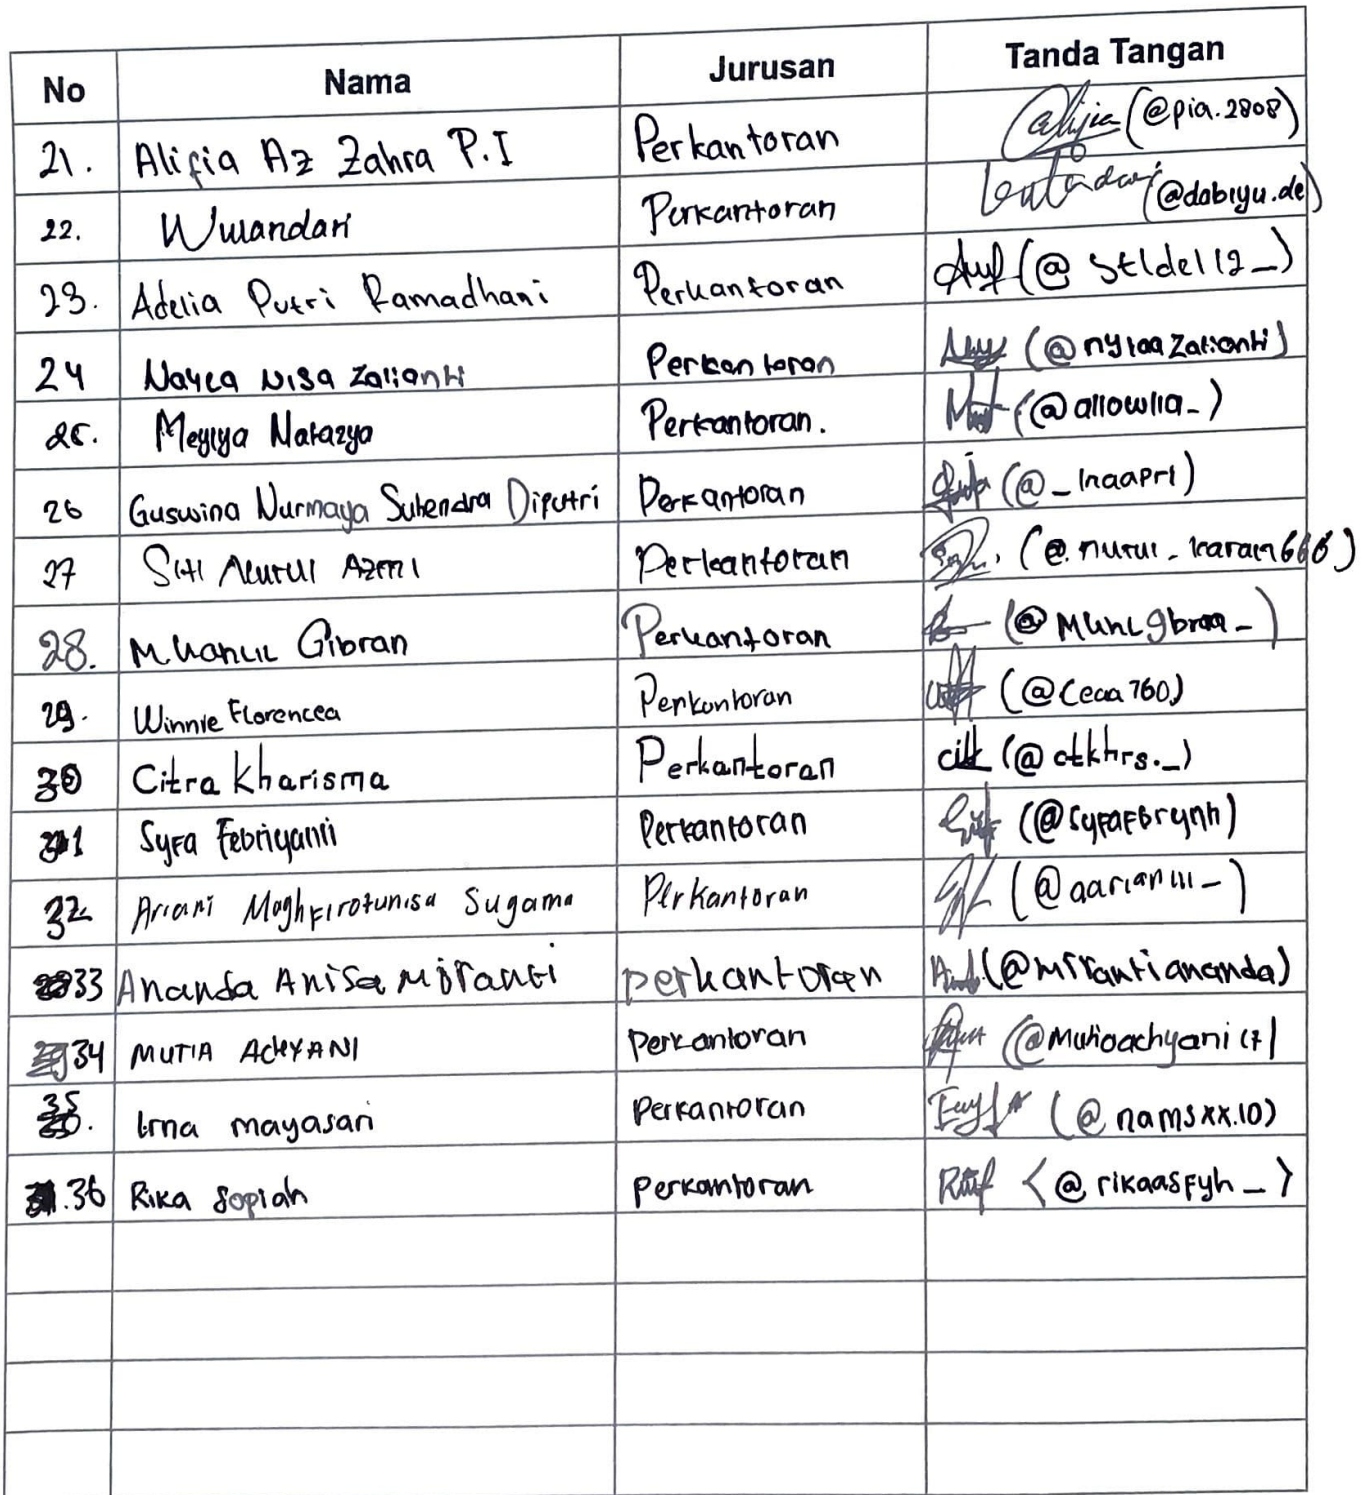 No Nama Jurusan Tanda Tangan
21. Alifia Az Zahra P.I Perkantoran (@pia.2808)
22. Wulandari Perkantoran (@dabiyu.de)
23. Adelia Putri Ramadhani Perkantoran (@stldel12_)
24 Nayla Nisa Zalianti Perkantoran (@nylaazalianti)
25. Meyiya Natazya Perkantoran. (@allowlia_)
26 Guswina Nurmaya Suhendra Diputri Perkantoran (@_inaapri)
27 Siti Nurul Azmi Perkantoran
28. Gibran Perkantoran
29. Winnie Florencea Perkantoran (@ceaa760)
30 Citra Kharisma Perkantoran (@ctkhrs._)
31 Syfa Febriyanti Perkantoran (@syfafbrynh)
32 Ariani Maghfirotunisa Sugama Perkantoran (@aarianiii_)
33 Ananda Anisa Miranti perkantoran (@mirantiananda)
34 MUTIA ACHYANI Perkantoran (@mutiaachyani17)
35. Irna mayasari Perkantoran (@namsxx.10)
36 Rika Sopiah Perkantoran <@rikaasfyh_>